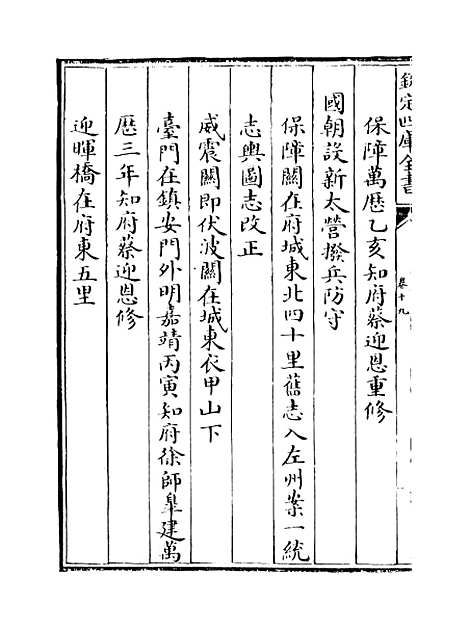 欽定四庫全書
卷十九
保障萬歷乙亥知府蔡迎恩重修
國朝設新太營撥兵防守
保障關在府城東北四十里舊志入左州案一統
志輿圖志改正
威震關即伏波關在城東衣甲山下
臺門在鎮安門外明嘉靖丙寅知府徐師臯建萬
歷三年知府蔡迎恩修
迎暉橋在府東五里